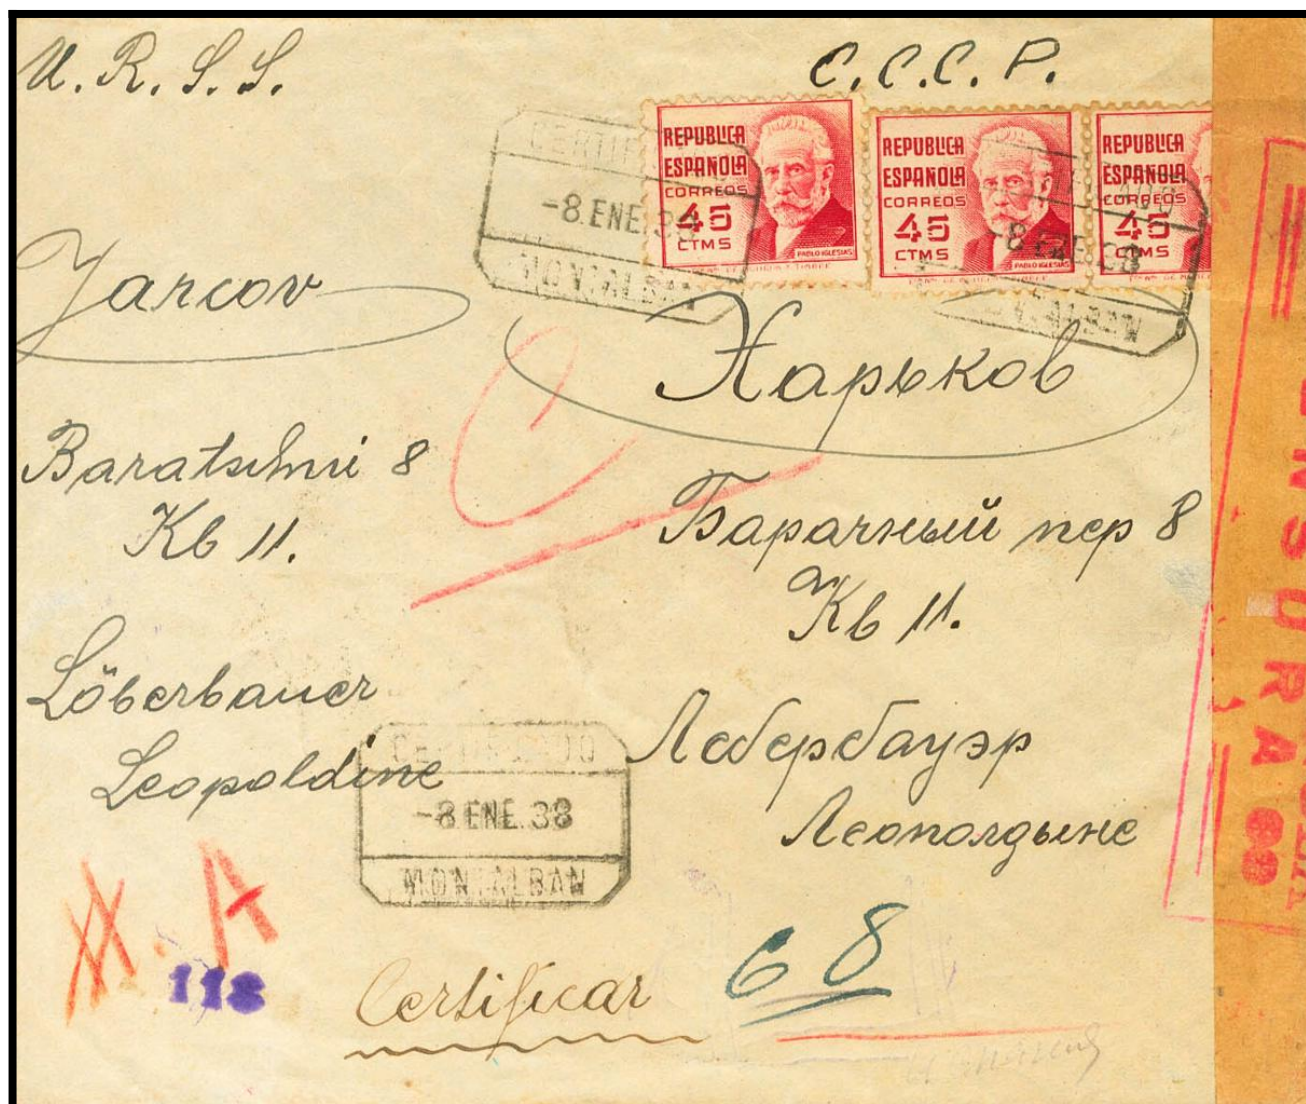 U. R. S. S.
C. C. C. P.
REPUBLICA
ESPAÑOLA
CORREOS
45
CTMS
PABLO IGLESIAS
REPUBLICA
ESPAÑOLA
CORREOS
45
CTMS
PABLO IGLESIAS
REPUBLICA
ESPAÑOLA
CORREOS
45
CTMS
-8. ENE. 38
MONTALBAN
-8 ENE. 38
Jarcov
Харьков
Baratschni 8
Kb 11.
Барачный пер 8
Кв 11.
Löberbauer
Leopoldine
Лебербауэр
Леополдыне
CERTIFICADO
-8 ENE. 38
MONTALBAN
A
118
Certificar
68
CENSURA